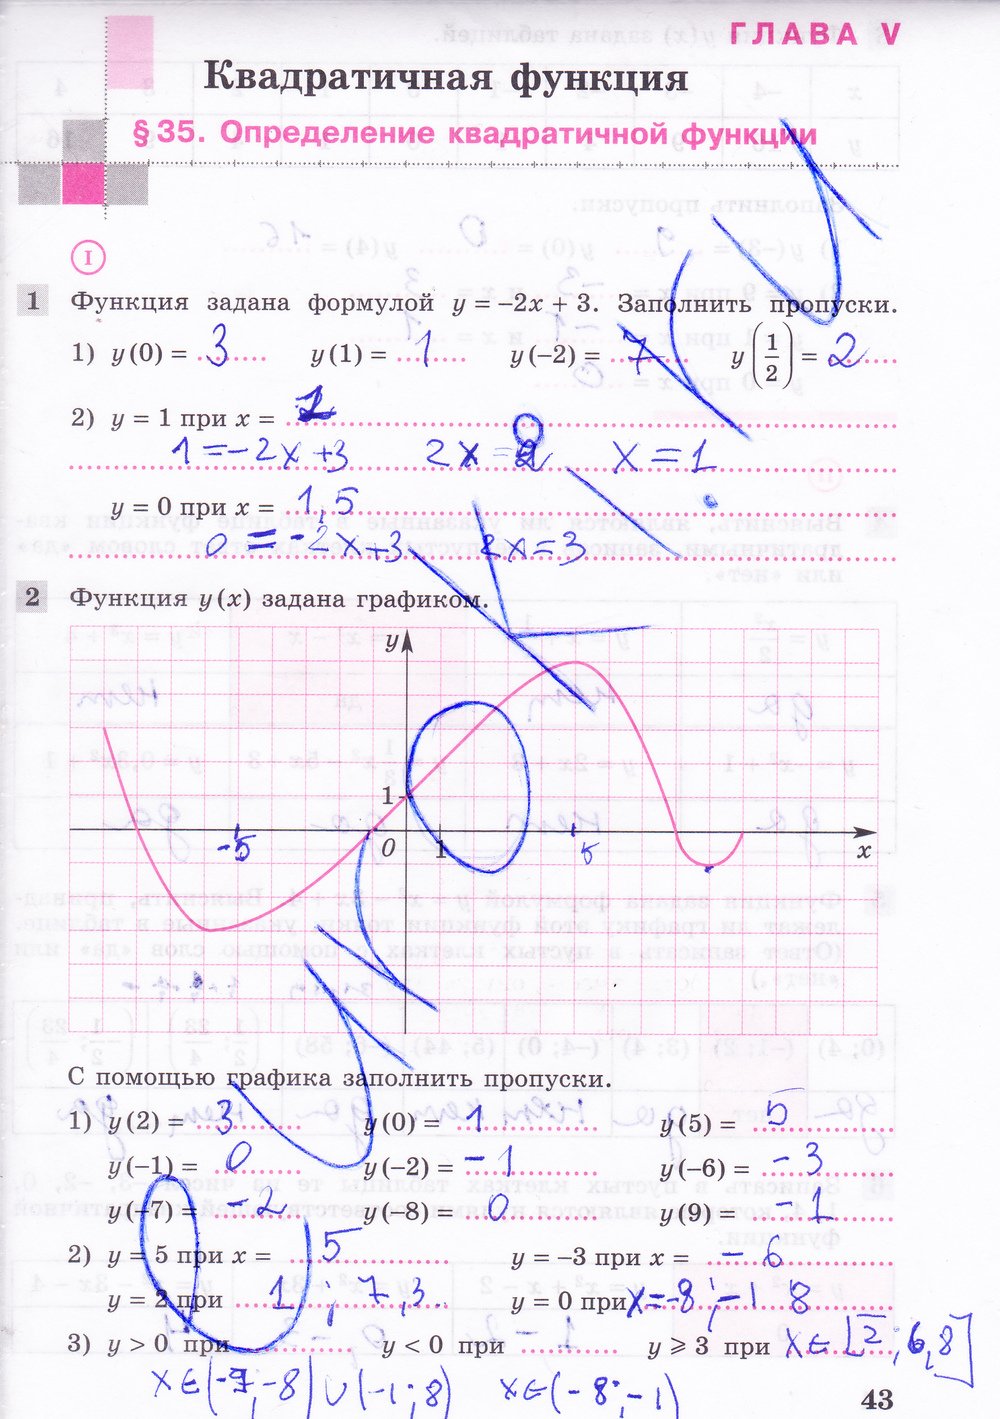 ГЛАВА V
Квадратичная функция
§ 35. Определение квадратичной функции
I
1 Функция задана формулой y = –2x + 3. Заполнить пропуски.
1) y(0) = 3 y(1) = 1 y(–2) = 7 y(1/2) = 2
2) y = 1 при x = 1
1 = -2x +3 2x = 2 x = 1
y = 0 при x = 1,5
0 = -2x+3 2x = 3
2 Функция y(x) задана графиком.
y
1
-5 0 1 5 x
С помощью графика заполнить пропуски.
1) y(2) = 3 y(0) = 1 y(5) = 5
y(–1) = 0 y(–2) = -1 y(–6) = -3
y(–7) = -2 y(–8) = 0 y(9) = -1
2) y = 5 при x = 5 y = –3 при x = -6
y = 2 при 1; 7,3 y = 0 при x=-8; -1 8
3) y > 0 при y < 0 при y ⩾ 3 при x ∈ [2; 6,8]
x ∈ (-9; -8) ∪ (-1; 8) x ∈ (-8; -1)
43